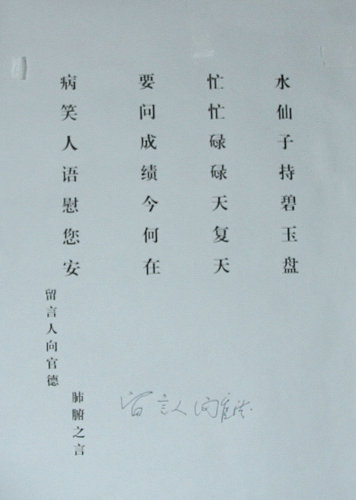 水仙子持碧玉盘
忙忙碌碌天复天
要问成绩今何在
病笑人语慰您安
留言人向官德
肺腑之言
留言人向官德